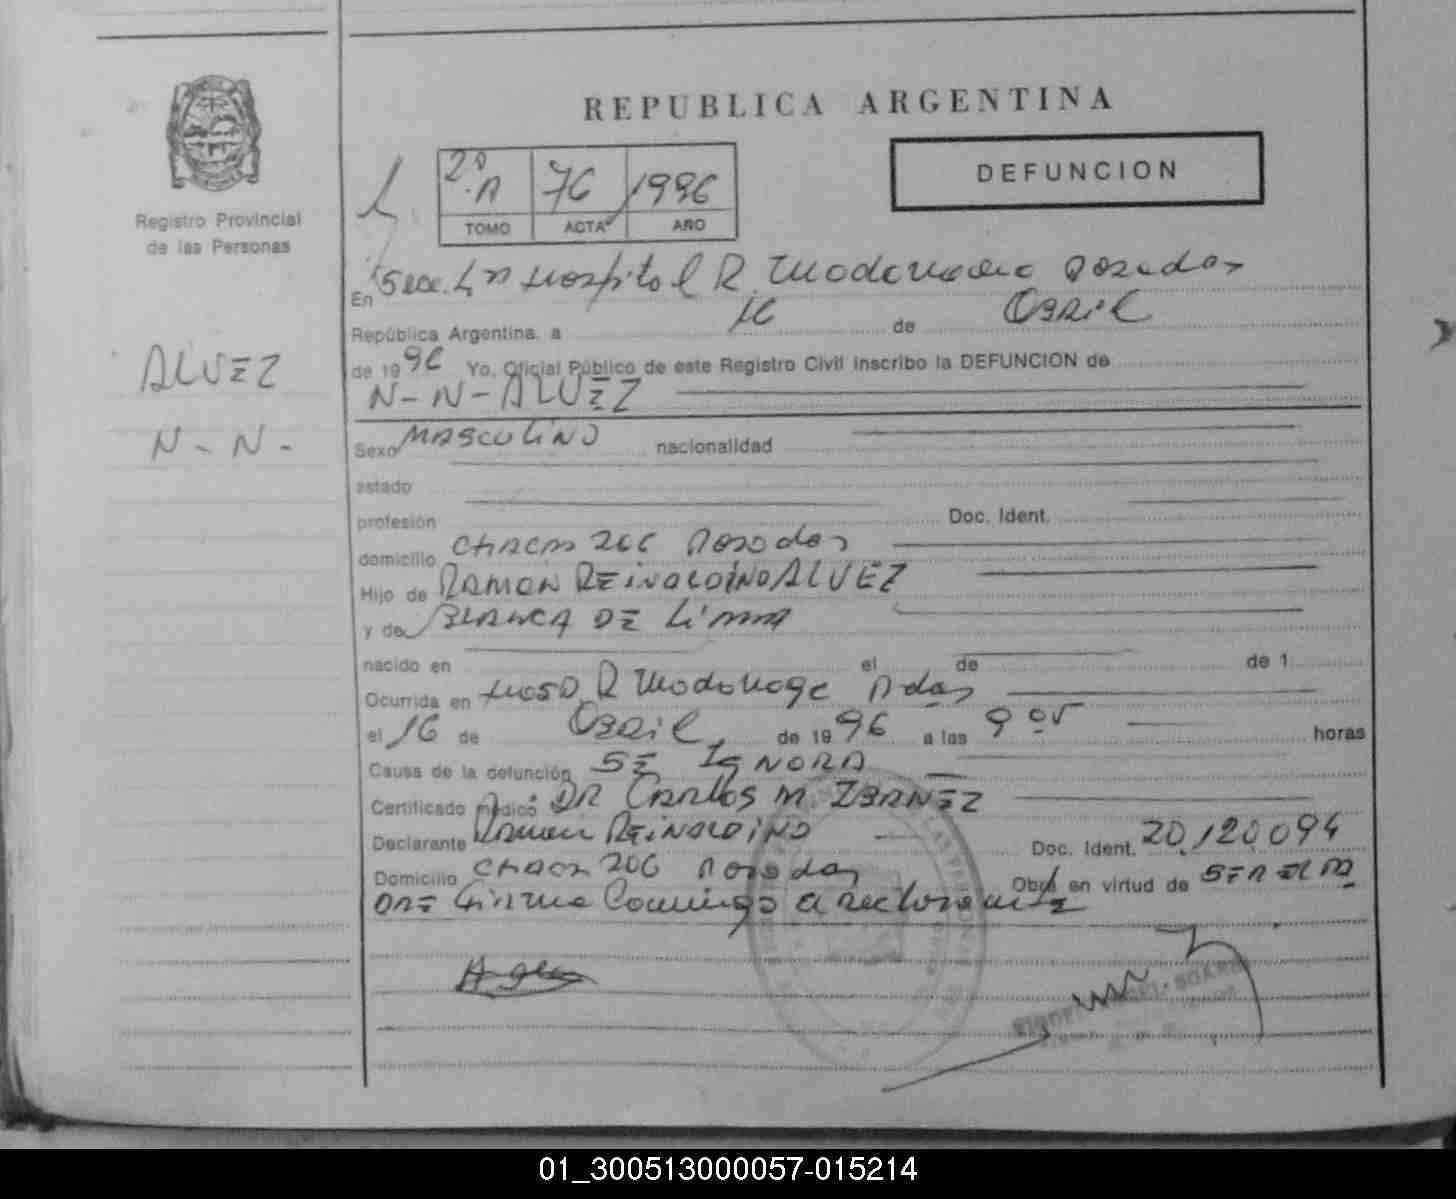 REPUBLICA ARGENTINA
DEFUNCION
2º A 76 1996
TOMO ACTA AÑO
Registro Provincial
de las Personas
En Secc. Hospital R. Posadas
República Argentina, a 16 de Abril
de 1996 Yo, Oficial Público de este Registro Civil inscribo la DEFUNCION de
ALVEZ
N-N-ALVEZ
N-N-
Sexo MASCULINO nacionalidad
estado
profesión Doc. Ident.
domicilio CHACRA 206 Posadas
Hijo de RAMON REINALDINO ALVEZ
y de BLANCA DE LIMA
nacido en el de de 1
Ocurrida en Hosp. R Pdas
el 16 de Abril de 1996 a las 9 05 horas
Causa de la defunción SE IGNORA
Certificado médico DR CARLOS M. IBAÑEZ
Declarante Ramon REINALDINO Doc. Ident. 20.120094
Domicilio CHACRA 206 Posadas Obra en virtud de SER EL PA
DRE Firma Conmigo el declarante
01_300513000057-015214